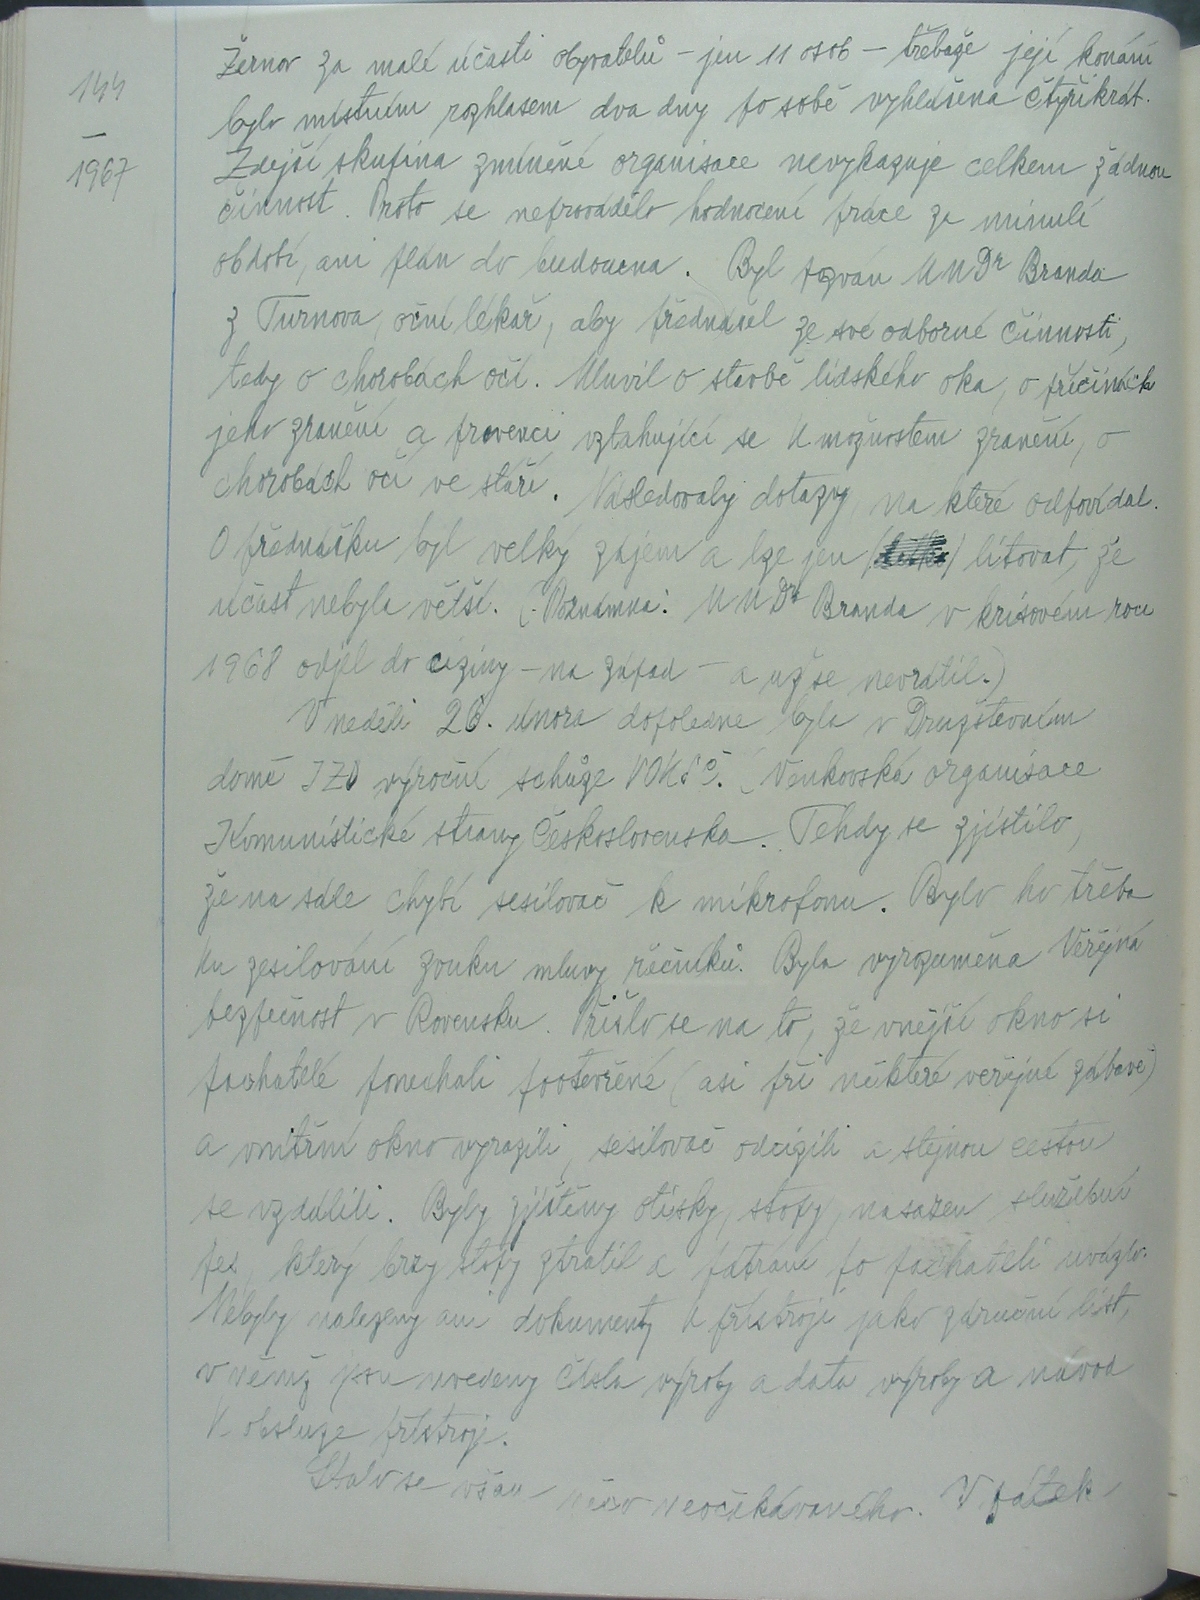 144
—
1967
Žernov za malé účasti obyvatelů – jen 11 osob – třebaže její konání
bylo místním rozhlasem dva dny po sobě vyhlášena čtyřikrát.
Zdejší skupina zmíněné organisace nevykazuje celkem žádnou
činnost. Proto se neprovádělo hodnocení práce za minulé
období, ani plán do budoucna. Byl pozván MUDr Branda
z Turnova, oční lékař, aby přednášel ze své odborné činnosti,
tedy o chorobách očí. Mluvil o stavbě lidského oka, o příčinách
jeho zranění a prevenci vztahující se k možnostem zranění, o
chorobách očí ve stáří. Následovaly dotazy, na které odpovídal.
O přednášku byl velký zájem a lze jen litovat, že
účast nebyla větší. (Poznámka: MUDr Branda v krisovém roce
1968 odjel do ciziny – na západ – a už se nevrátil.)
V neděli 26. února dopoledne byla v Družstevním
domě JZD výroční schůze VOKSČ. (Venkovská organisace
Komunistické strany Československa. Tehdy se zjistilo,
že na sále chybí sesilovač k mikrofonu. Bylo ho třeba
ku zesilování zvuku mluvy řečníků. Byla vyrozuměna Veřejná
bezpečnost v Rovensku. Přišlo se na to, že vnější okno si
pachatelé ponechali pootevřené (asi při některé veřejné zábavě)
a vnitřní okno vyrazili, sesilovač odcizili a stejnou cestou
se vzdálili. Byly zjištěny otisky, stopy, nasazen služební
pes, který brzy stopy ztratil a pátrání po pachateli uvázlo.
Nebyly nalezeny ani dokumenty k přístroji jako záruční list,
v němž jsou uvedeny čísla výroby a data výroby a návod
k obsluze přístroje.
Stalo se však něco neočekávaného. V pátek